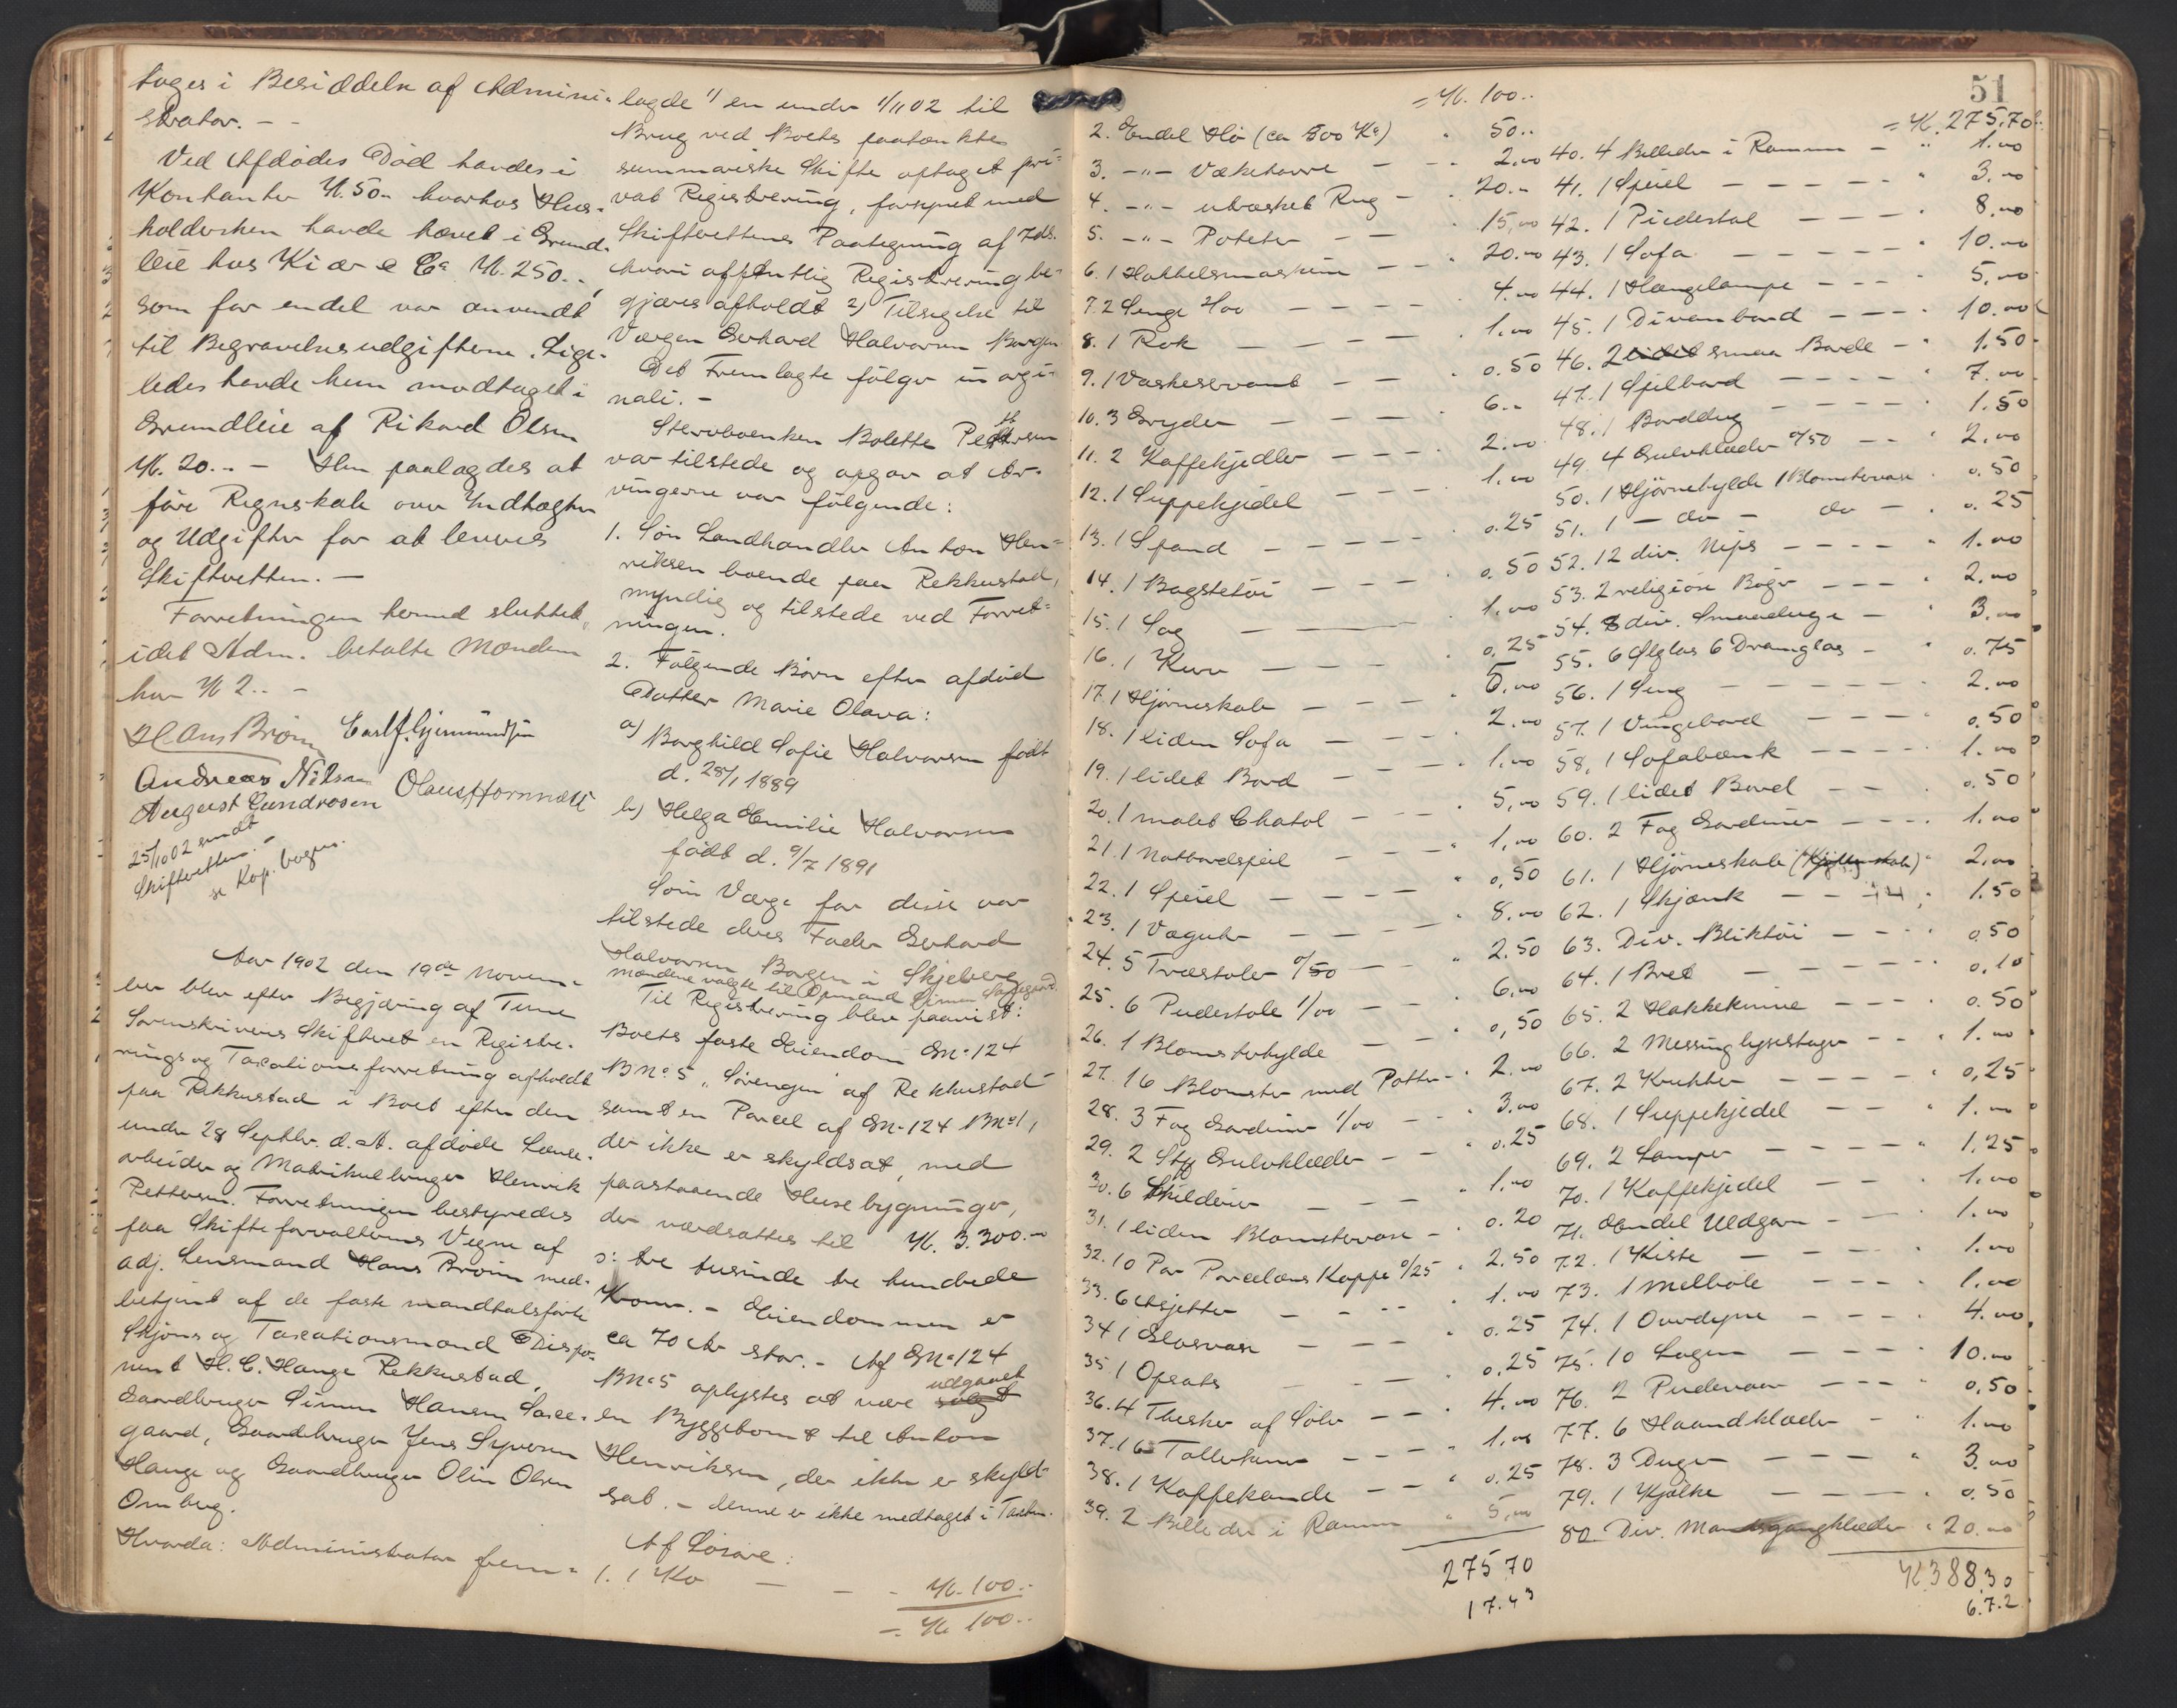 tages i Besiddelse af Admini-
strator. - -
Ved Afdødes Død havdes i
Kontanter K. 50.- hvorhos Hus-
holdersken havde hævet i Grund-
leie hos Kiær & Co K. 250..,
som for endel var anvendt
til Begravelsesudgifterne. Lige-
ledes havde hun modtaget i
Grundleie af Rikard Olsen
K. 20.. - Hun paalagdes at
føre Regnskab over Indtægter
og Udgifter for at leveres
Skifteretten. -
Forretningen hermed sluttet,
idet Adm. betalte Mændene
hver K 2.. -
H. Ans Brönn
Andreas Nilsen
August Gundrosen
25/10 02 sendt
Skifteretten. -
se Kop. bogen.
Aar 1902 den 19de Novem-
ber blev efter Begjæring af Tune
Sorenskrivers Skifteret en Registre-
rings og Taxationsforretning afholdt
paa Rekkustad i Boet efter den
under 28 Septbr. d. A. afdøde
arbeider og Matrikulbruger Henrik
Pettersen. Forretningen bestyredes
paa Skifteforvalterens Vegne af
adj. Lensmand Hans Brönn med-
betjent af de faste mandtalsførte
Skjøns og Taxationsmænd Dispo-
nent H. C. Hauge Rekkustad,
Gaardbruger Simen Hansen
gaard, Gaardbruger Jens Syversen
Hauge og Gaardbruger Olin Olsen
Omberg.
Hvorda: Administrator frem-
lagde 1) en under 1/11 02 til
Brug ved Boets paatænkte
summariske Skifte optaget pri-
vat Registrering, forsynet med
Skifterettens Paategning af 7ds.
hvori offentlig Registrering be-
gjæres afholdt 2) Tilsigelse til
Værgen Gerhard Halvorsen Borgen
Det Fremlagte følger in origi-
nali. -
Stervboenken Bolette Pettersen
var tilstede og opgav at Ar-
vingerne var følgende:
1. Søn Landhandler Anton Hen-
riksen boende paa Rekkustad,
myndig og tilstede ved Forret-
ningen.
2. Følgende Børn efter afdød
Datter Marie Olava:
a) Borghild Sofie Halvorsen født
d. 28/1 1889
b) Helga Emilie Halvorsen
født d. 9/7 1891
Som Værge for disse var
tilstede deres Fader Gerhard
Halvorsen Borgen i Skjeberg
Mændene valgte til Opmand Simen
Til Registrering blev paavist:
Boets faste Eiendom GNo 124
BNo 5 "Sørengen" af Rekkustad
samt en Parcel af GNo 124 BNo 1,
der ikke er skyldsat, med
paastaaende Husebygninger,
der værdsattes til K. 3.300.-
ɔ: tre tusinde tre hundrede
Kroner. - Eiendommen er
ca 70 Ar stor. - Af GNo 124
BNo 5 oplystes at være udgaaet
en Byggetomt til Anton
Henriksen, der ikke er skyld-
sat. - denne er ikke medtaget i Taxten.
Af Løsøre:
1. 1 Ko - - - K. 100..
= K. 100..
Carl J. Gjermundsen
Olaus Hornnæss
= K. 100..
2. Endel Hø (ca 500 Kg) " 50..
3. -"- Væketørre - - 2.00
4. -"- utræsket Rug - - 20.-
5. -"- Poteter - - 15,00
6. 1 Hakkelsmaskin - - 20.00
7. 2 Senge 2/00 - - - 4.00
8. 1 Rok - - - - 1.00
9. 1 Vaskeservant - - 0.50
10. 3 Gryder - - - 6.-
11. 2 Kaffekjedler - - - 2.00
12. 1 Suppekjedel - - - 1.00
13. 1 Spand - - - - 0.25
14. 1 Bagstetøi - - - 0.50
15. 1 Sag - - - 1.00
16. 1 Kurv - - - 0,25
17. 1 Hjørneskab - - - 5.00
18. 1 liden Sofa - - - 2.00
19. 1 lidet Bord - - - 1.00
20. 1 malet Chatol - - - 5,00
21. 1 Natbordspeil - - - 1,00
22. 1 Speil - - - - 0,50
23. 1 Væguhr - - - - 8.00
24. 5 Træstoler 0/50 - - 2.50
25. 6 Pudestole 1/00 - - 6,00
26. 1 Blomsterhylde - - 0,50
27. 16 Blomster med Potter - 2.00
28. 3 Fag Gardiner 1/00 - - 3.00
29. 2 Stk Gulvklæder - - 0.25
30. 6 Skilderier - - - 1,00
31. 1 liden Blomstervase - 0.20
32. 10 Par Porcelæns Koppe 0/25 " 2.50
33. 6 Asjetter - - - 1.00
34. 1 Glasvase - - - 0.25
35. 1 Opsats - - - 0,25
36. 4 Theskeer af Sølv - - 4.00
37. 16 Tallerkener - - - 1,00
38. 1 Kaffekande - - - 0.25
39. 2 Billeder i Ramme " 5,00
275 70
17.43
51
= K. 275,70
40. 4 Billeder i Ramme - " 1.00
41. 1 Speil - - - - " 3.00
42. 1 Piedestal - - - - 8.00
43. 1 Sofa - - - - - 10.00
44. 1 Hængelampe - - - 5,00
45. 1 Divanbord - - - - 10.00
46. 2 lidet smaa Borde - - 1.50
47. 1 Spilbord - - - - 7.00
48. 1 Borddug - - - - 1.50
49. 4 Gulvklæder 0/50 - - - 2.00
50. 1 Hjørnehylde 1 Blomstervase " 0.50
51. 1 - do - do - 0.25
52. 12 div. Nips - - - - 1.00
53. 2 religiøse Bøger - - - 2.00
54. 8 div. Smaaduge - " 3.00
55. 6 Ølglas 6 Dramglas - " 0.75
56. 1 Seng - - - - - 2.00
57. 1 Vingebord - - - - 0.50
58. 1 Sofabænk - - - - 1.00
59. 1 lidet Bord - - - 0.50
60. 2 Fag Gardiner - - - 1.00
61. 1 Hjørneskab " 2,00
62. 1 Skjænk - - - 1.50
63. Div. Bliktøi - - - 0.50
64. 1 Bret - - - - 0.10
65. 2 Hakkeknive - - - 0.50
66. 2 Messinglysestager - - 1.00
67. 2 Krukker - - - - 0,25
68. 1 Suppekjedel - - " 1.00
69. 2 Lamper - - - - 1,25
70. 1 Kaffekjedel - - - 1.00
71. Endel Uldgarn - - - 1.00
72. 1 Kiste - - - - 1.00
73. 1 Melbøle - - - 1.00
74. 1 Overdyne - - - 4.00
75. 10 Lagen - - - - 10.00
76. 2 Pudevaar - - - 0,50
77. 6 Haandklæder - - 1.00
78. 3 Duger - - - " 3.00
79. 1 Kjælke - - - " 0.50
80. Div. Mandsgangklæder " 20.00
K. 388,30
6.7.2